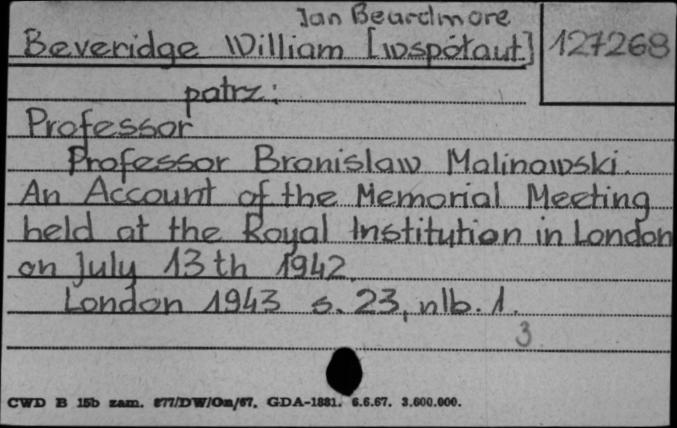 Jan Beardmore
Beveridge William [współaut] 127268
patrz:
Professor
Professor Bronislaw Malinowski.
An Account of the Memorial Meeting
held at the Royal Institution in London
on July 13th 1942.
London 1943 s. 23, nlb. 1.
3
CWD B 15b zam. 877/DW/Om/67. GDA-1881. 6.6.67. 3.600.000.